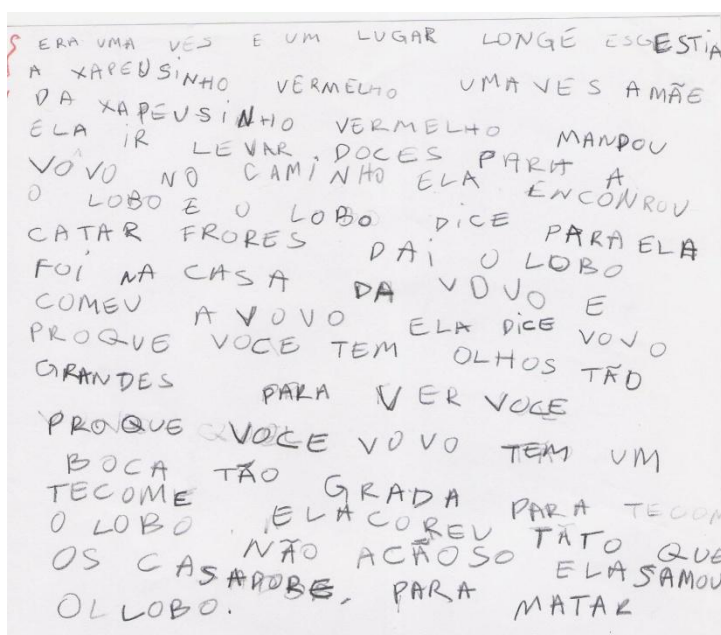 ERA UMA VES E UM LUGAR LONGE ESGESTIA
A XAPEUSINHO VERMELHO UMA VES A MÃE
DA XAPEUSINHO VERMELHO MANDOU
ELA IR LEVAR DOCES PARA A
VOVO NO CAMINHO ELA ENCONROU
O LOBO E O LOBO DICE PARA ELA
CATAR FRORES DAI O LOBO
FOI NA CASA DA VOVO E
COMEU A VOVO ELA DICE VOVO
PROQUE VOCE TEM OLHOS TÃO
GRANDES PARA VER VOCE
PROQUE VOCE VOVO TEM UM
BOCA TÃO GRADA PARA TECOM
TECOME
O LOBO. ELA COREU TATO QUE
NÃO ELA SAMOU
OS CASADORE, PARA MATAR
OLLOBO.